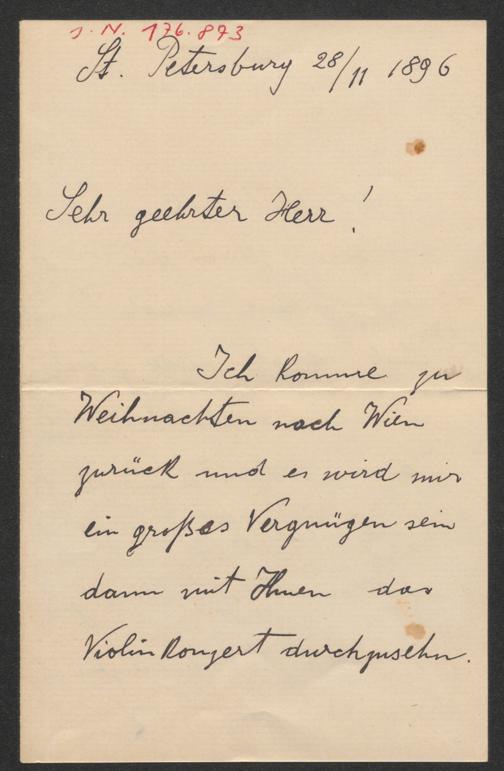 J. N. 176.893
St. Petersburg 28/11 1896
Sehr geehrter Herr!
Ich komme zu
Weihnachten nach Wien
zurück und es wird mir
ein großes Vergnügen sein
dann mit Ihnen das
Violinkonzert durchzusehn.